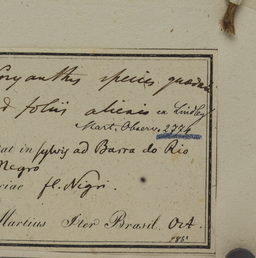 oryanthes species quædam
d foliis alienis ex Lindley
Mart. Observ. 2774
at in sylvis ad Barra do Rio
Negro
riae fl. Nigri.
Martius Iter Brasil. Oct.